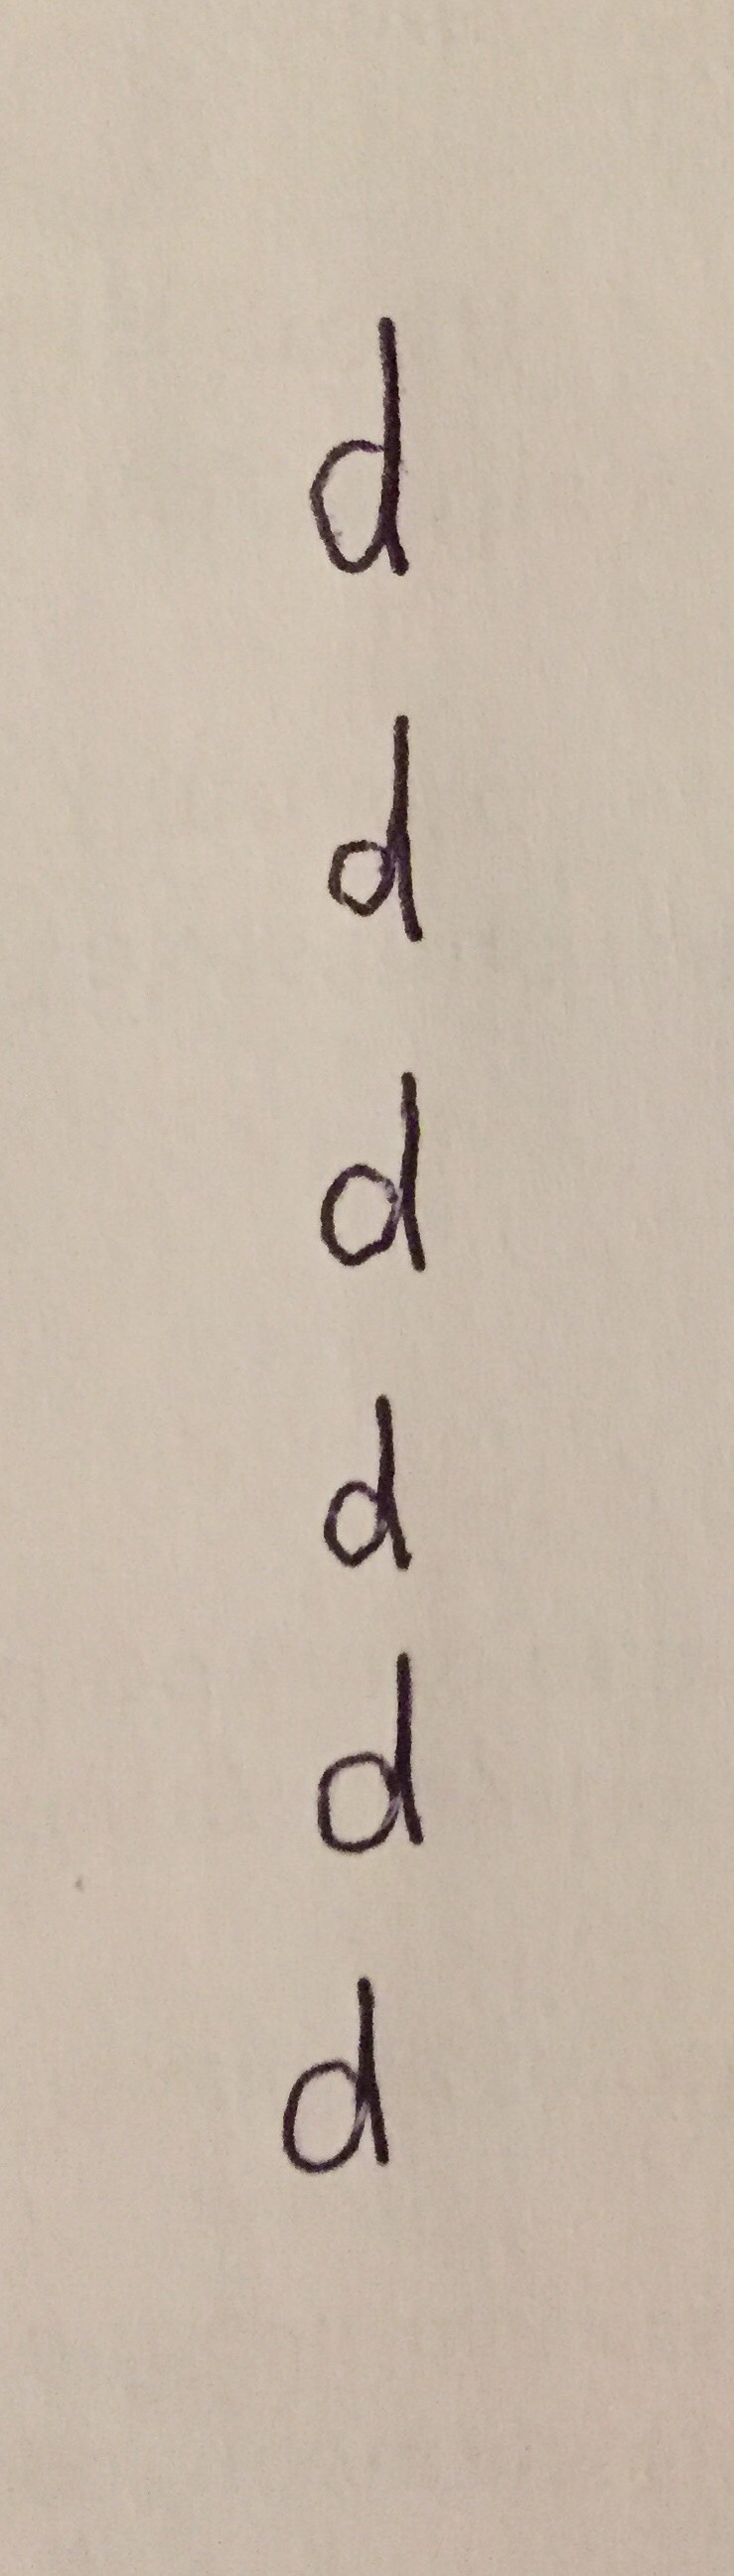 d
d
d
d
d
d